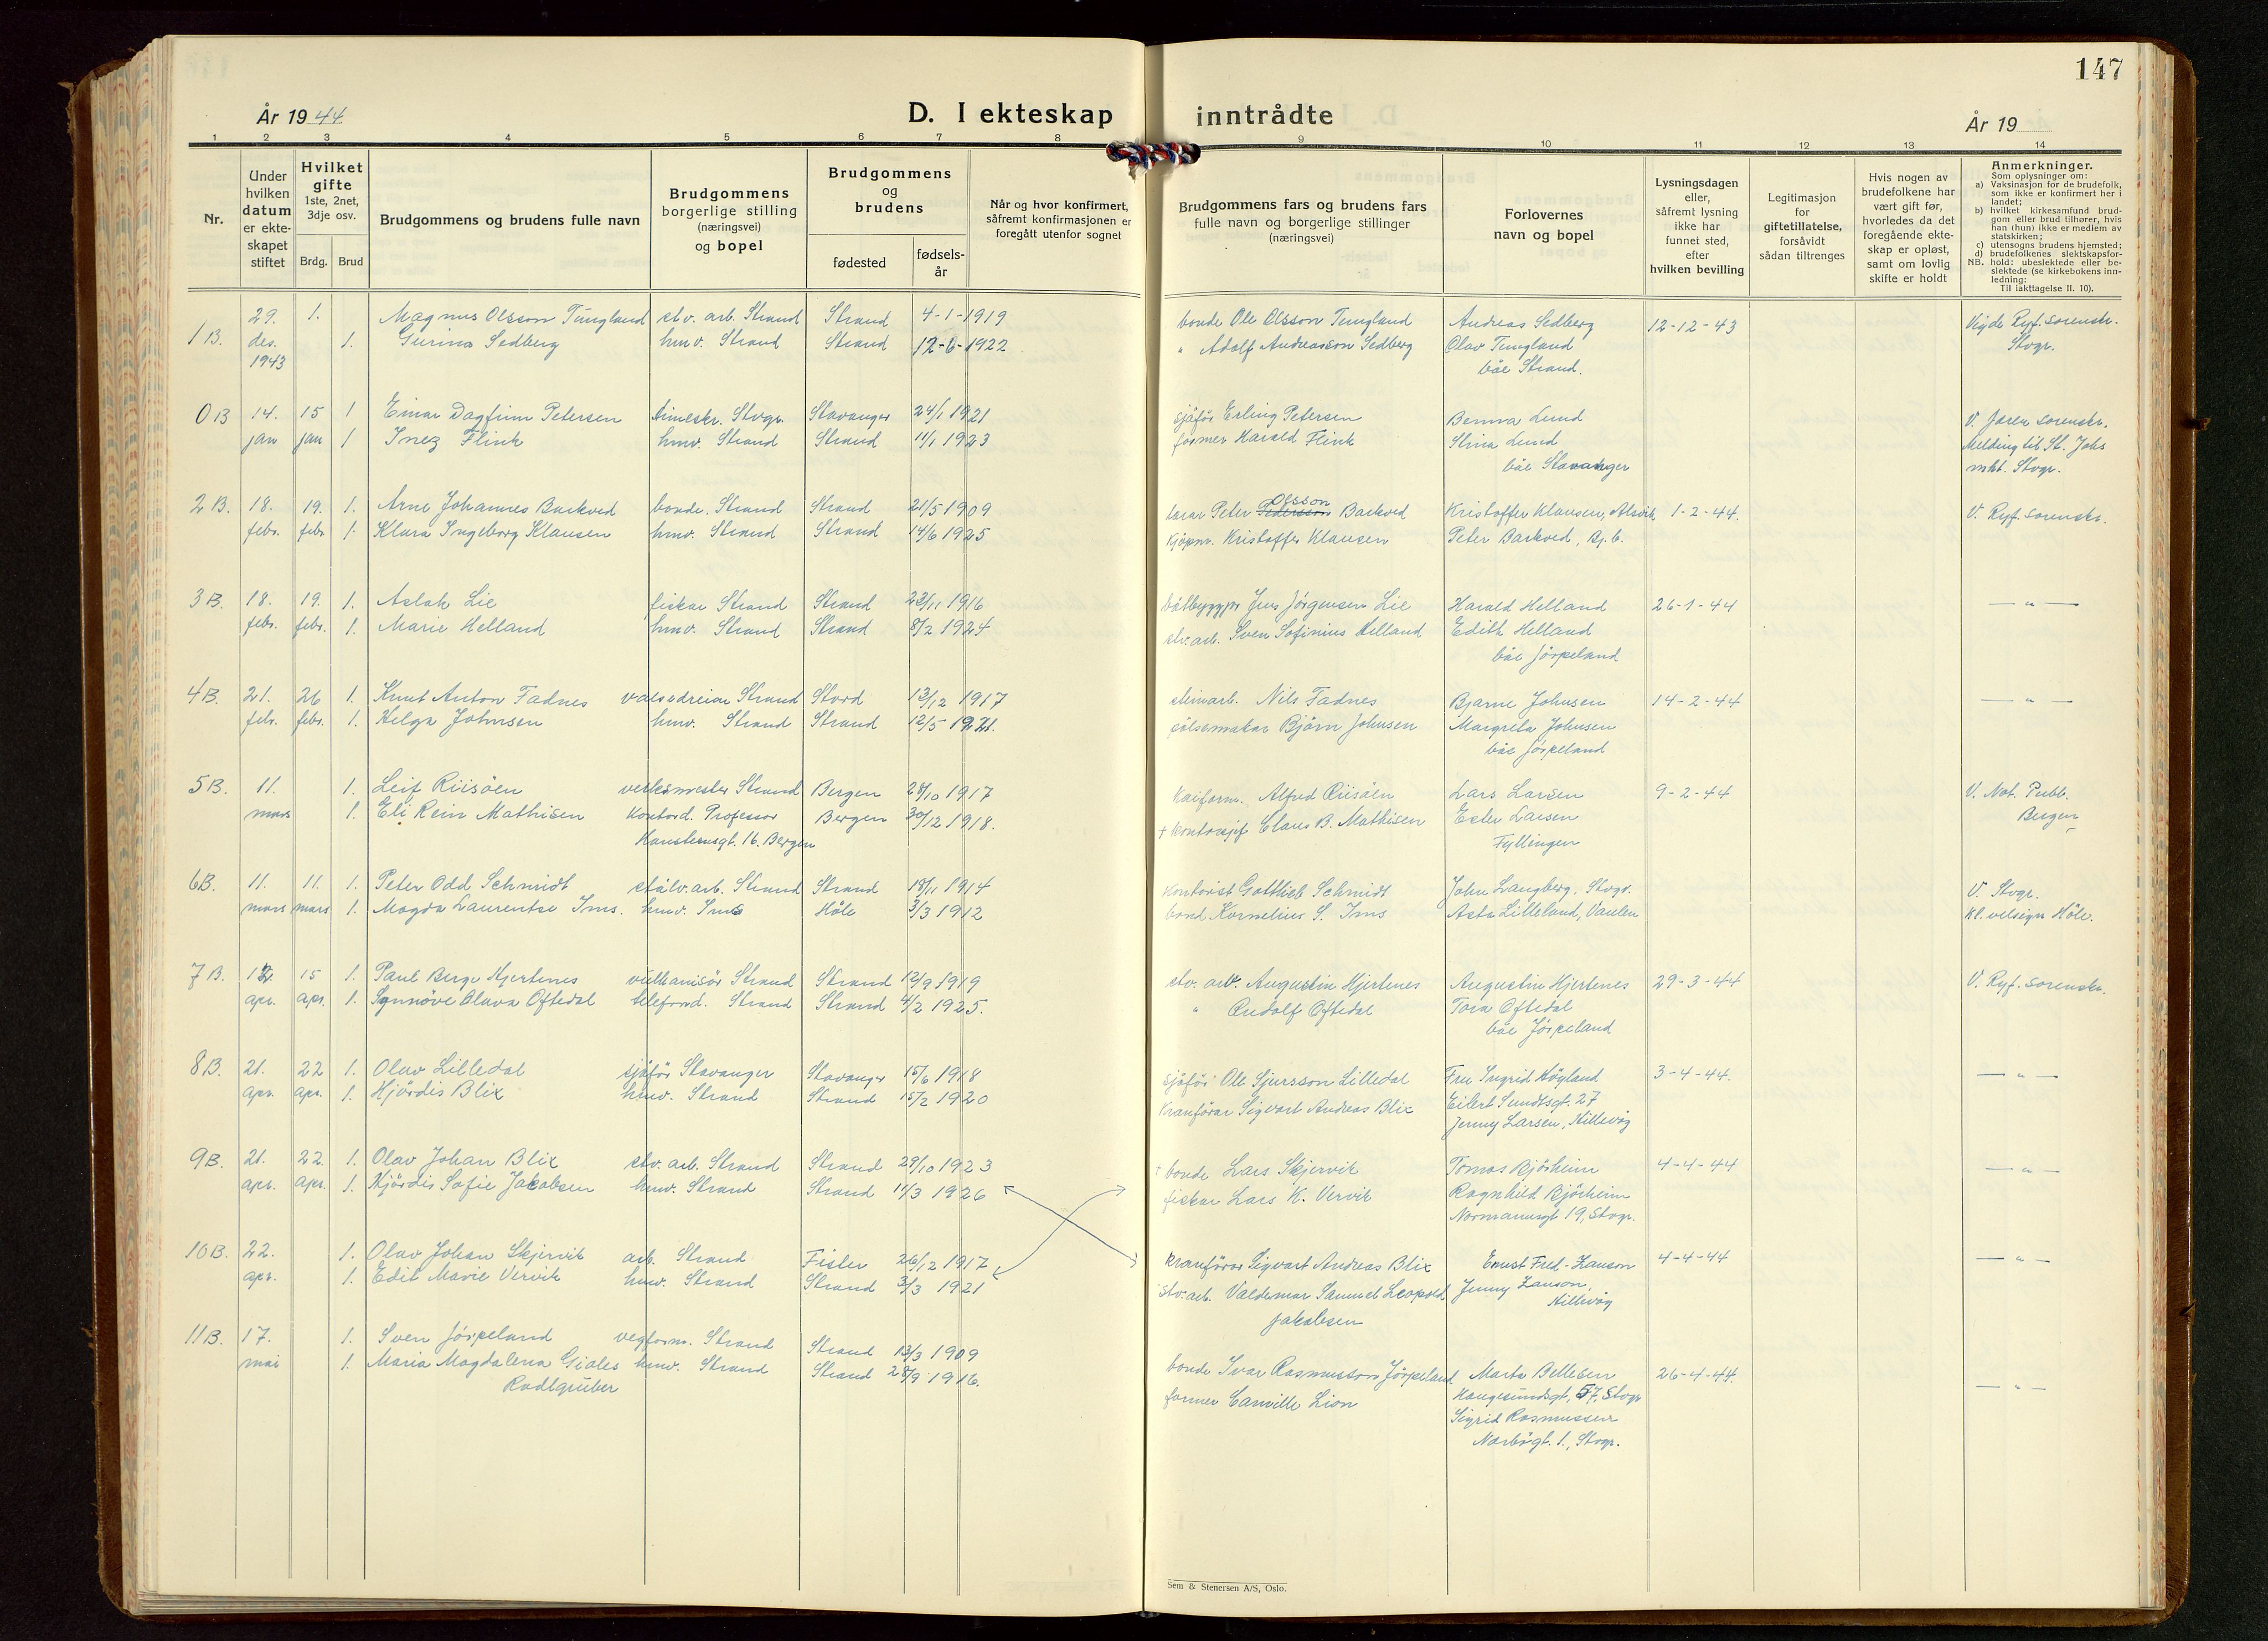 147
År 1944
D. I ekteskap inntrådte
År 19
1 2 3 4 5 6 7 8 9 10 11 12 13 14
Nr.
Under
hvilken
datum
er ekte-
skapet
stiftet
Hvilket
gifte
1ste, 2net,
3dje osv.
Brdg. Brud
Brudgommens og brudens fulle navn
Brudgommens
borgerlige stilling
(næringsvei)
og bopel
Brudgommens
og
brudens
fødested
fødsels-
år
Når og hvor konfirmert,
såfremt konfirmasjonen er
foregått utenfor sognet
Brudgommens fars og brudens fars
fulle navn og borgerlige stillinger
(næringsvei)
Forlovernes
navn og bopel
Lysningsdagen
eller,
såfremt lysning
ikke har
funnet sted,
efter
hvilken bevilling
Legitimasjon
for
giftetillatelse,
forsåvidt
sådan tiltrenges
Hvis nogen av
brudefolkene har
vært gift før,
hvorledes da det
foregående ekte-
skap er opløst,
samt om lovlig
skifte er holdt
Anmerkninger.
Som oplysninger om:
a) Vaksinasjon for de brudefolk,
som ikke er konfirmert her i
landet;
b) hvilket kirkesamfund brud-
gom eller brud tilhører, hvis
han (hun) ikke er medlem av
statskirken;
c) utensogns brudens hjemsted;
d) brudefolkenes slektskapsfor-
NB. hold: ubeslektede eller be-
slektede (se kirkebokens inn-
ledning:
Til iakttagelse II. 10).
29. 1. Magnus Olsson Tungland stv. arb. Strand Strand 4-1-1919 bonde Ole Olsson Tungland Andreas Sedberg 12-12-43 Vigde Ryf. sorenskr.
1 B. des. 1. Gurina Sedberg hmv. Strand Strand 12-6-1922 " Adolf Andreasson Sedberg Olav Tungland Stvgr.
1943 båe Strand.
0 B 14. 15 1 Einar Dagfinn Petersen timeskr. Stvgr. Stavanger 24/1 1921 sjåfør Erling Petersen Benna Lund V. Jæren sorenskr.
jan jan 1 Inez Flink hmv. Strand Strand 11/1 1923 former Harald Flink Stina Lund Melding til St. Johs
båe Stavanger mht. Stvgr.
2 B. 18. 19. 1. Arne Johannes Barkved bonde. Strand Strand 21/5 1909 lærar Peter Olsson Barkved Kristoffer Klausen, Alsvik 1-2-44. V. Ryf. sorenskr.
febr. febr. 1. Klara Ingeborg Klausen hmv. Strand Strand 14/6 1925 kjøpm. Kristoffer Klausen Peter Barkved, Bj. b.
3 B. 18. 19. 1. Aslak Lie fiskar Strand Strand 23/11 1916 båtbyggjar Jens Jörgensen Lie Harald Helland 26-1-44 — " —
febr. febr. 1. Marie Helland hmv. Strand Strand 8/2 1924 stv. arb. Sven Sofinius Helland Edith Helland
båe Jörpeland
4 B. 21. 26 1. Knut Anton Fadnes valsedreiar Strand Stord 13/12 1917 steinarb. Nils Fadnes Bjarne Johnsen 14-2-44 — " —
febr. febr. 1. Helga Johnsen hmv. Strand Strand 12/5 1921. pölsemakar Björn Johnsen Margreta Johnsen
båe Jörpeland
5 B. 11. 1. Leif Riisöen verksmester Strand Bergen 28/10 1917 Kaiform. Alfred Riisöen Lars Larsen 9-2-44 V. Not. Publ.
mars 1. Eli Rein Mathisen Kontord. Professor Bergen 30/12 1918. + kontorsjef Claus B. Mathisen Ester Larsen Bergen
Hansteensgt. 16. Bergen Fyllingen
6 B. 11. 11. 1. Peter Odd Schmidt stålv. arb. Strand Strand 18/11 1914 kontorist Gottlieb Schmidt John Langberg, Stvgr. V. Stvgr.
mars mars 1. Magda Laurentse Ims. hmv. Ims Höle 3/3 1912 bond Kornelius S. Ims Asta Lilleland, Vaulen Kl. velsign Höle.
7 B. 12. 15 1. Paul Berge Hjertenes vulkanisör Strand Strand 12/9 1919 stv. arb. Augustin Hjertenes Augustin Hjertenes 29-3-44 V. Ryf. sorenskr.
apr. apr. 1. Synnöve Olava Oftedal telefond. Strand Strand 4/2 1925. " Rudolf Oftedal Tora Oftedal
båe Jörpeland
8 B. 21. 22 1. Olav Lilledal sjåför Stavanger Stavanger 15/6 1918 sjåför Ole Sjursson Lilledal Fru Ingrid Högland 3-4-44. — " —
apr. apr. 1. Hjördis Blix hmv. Strand Strand 15/2 1920 kranförar Sigvart Andreas Blix Eilert Sundtsgt. 27
Jenny Larsen, Hillevåg
9 B. 21. 22. 1. Olav Johan Blix stv. arb. Strand Strand 29/10 1923 + bonde Lars Skjervik Tomas Björheim 4-4-44 — " —
apr. apr. 1. Hjördis Sofie Jakobsen hmv. Strand Strand 11/3 1926 fiskar Lars K. Vervik Ragnhild Björheim
Normannsgt 19, Stvgr.
10 B. 22. 1. Olav Johan Skjervik arb. Strand Fister 26/12 1917 kranförar Sigvart Andreas Blix Ernst Fred-Hanson 4-4-44 — " —
apr. 1. Edit Marie Vervik hmv. Strand Strand 3/3 1921 stv. arb. Valdemar Samuel Leopold Jenny Hanson,
Jakobsen Hillevåg
11 B. 17. 1. Sven Jörpeland vegform. Strand Strand 13/3 1909 bonde Ivar Rasmusson Jörpeland Marta Bellesen 26-4-44. — " —
mai 1. Maria Magdalena Gioles hmv. Strand Strand 28/9 1916. former Canville Lion Haugesundsgt. 57, Stvgr
Radlgruber Sigrid Rasmussen
Norbögt. 1., Stvgr.
Sem & Stenersen A/S, Oslo.